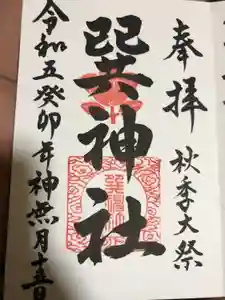 奉拝
秋季大祭
巽神社
令和五癸卯年神無月十五日